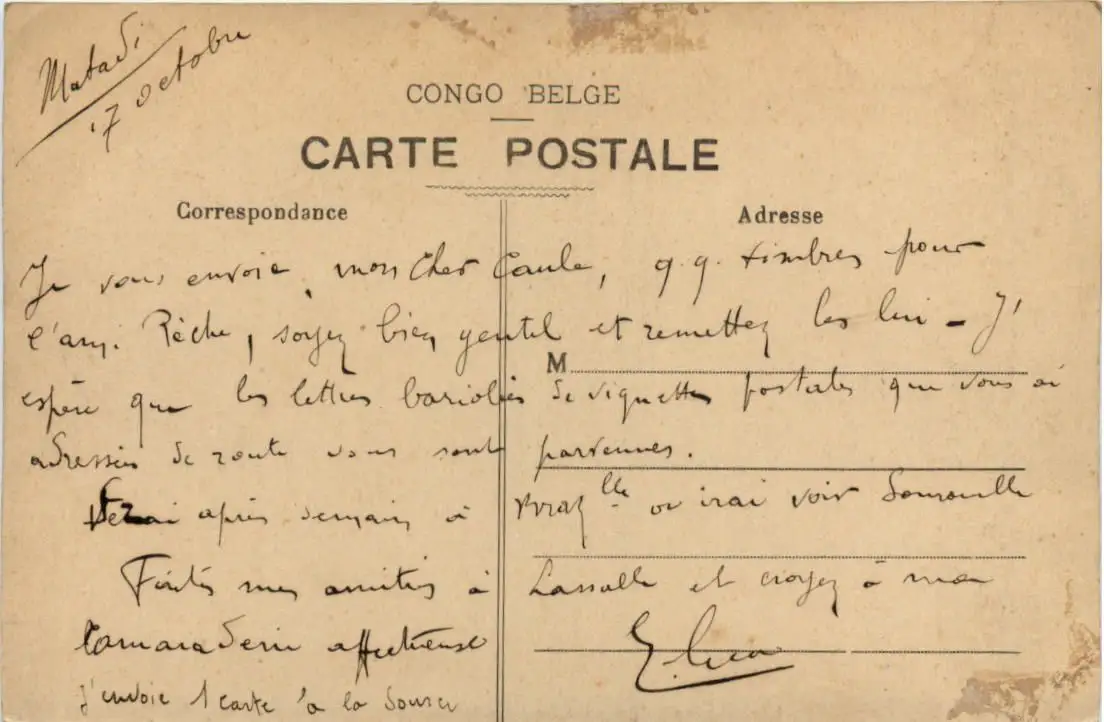 Matadi
17 octobre
CONGO BELGE
CARTE POSTALE
Correspondance
Adresse
Je vous envoie, mon cher Caule, q.q. timbres pour
l'ami Pèche, soyez bien gentil et remettez les lui - J'
M
espère que les lettres bariolées de vignettes postales que vous ai
adressées de route vous sont parvenues.
Serai après demain à Brazlle où irai voir
Faites mes amitiés à Lassalle et croyez à ma
Camaraderie affectueuse
J'envoie 1 carte à la